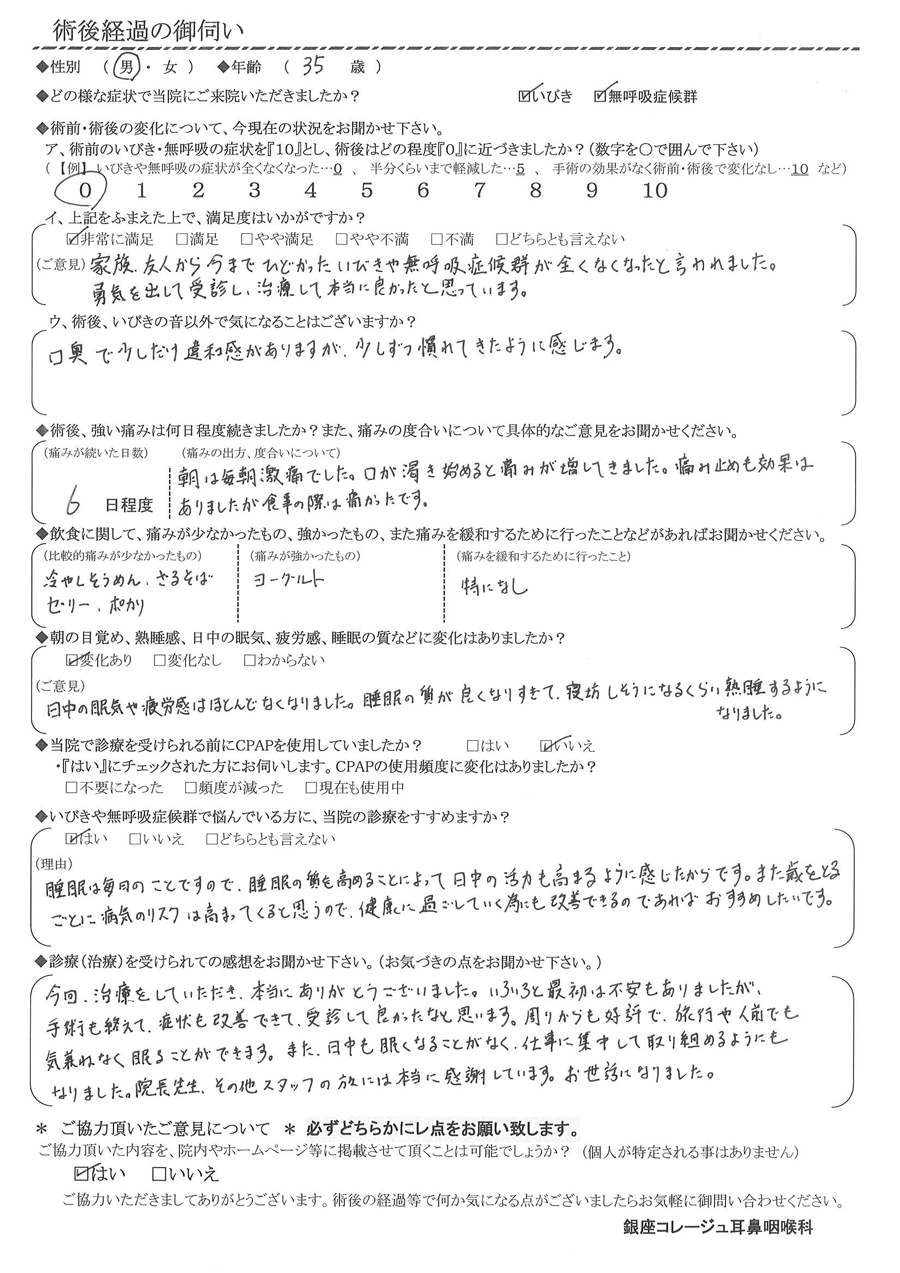 術後経過の御伺い
◆性別 （ 男 ・ 女 ） ◆年齢 （ 35 歳 ）
◆どの様な症状で当院にご来院いただきましたか？ ☑いびき ☑無呼吸症候群
◆術前・術後の変化について、今現在の状況をお聞かせ下さい。
ア、術前のいびき・無呼吸の症状を『10』とし、術後はどの程度『0』に近づきましたか？（数字を○で囲んで下さい）
（【例】 いびきや無呼吸の症状が全くなくなった…0 、 半分くらいまで軽減した…5 、 手術の効果がなく術前・術後で変化なし…10 など）
0 1 2 3 4 5 6 7 8 9 10
イ、上記をふまえた上で、満足度はいかがですか？
☑非常に満足 □満足 □やや満足 □やや不満 □不満 □どちらとも言えない
（ご意見） 家族、友人から今までひどかったいびきや無呼吸症候群が全くなくなったと言われました。
勇気を出して受診し、治療して本当に良かったと思っています。
ウ、術後、いびきの音以外で気になることはございますか？
口奥で少しだけ違和感がありますが、少しずつ慣れてきたように感じます。
◆術後、強い痛みは何日程度続きましたか？また、痛みの度合いについて具体的なご意見をお聞かせください。
（痛みが続いた日数） （痛みの出方、度合いについて）
朝は毎朝激痛でした。口が渇き始めると痛みが増してきました。痛み止めも効果は
6 日程度 ありましたが食事の際は痛かったです。
◆飲食に関して、痛みが少なかったもの、強かったもの、また痛みを緩和するために行ったことなどがあればお聞かせください。
（比較的痛みが少なかったもの） （痛みが強かったもの） （痛みを緩和するために行ったこと）
冷やしそうめん、ざるそば ヨーグルト 特になし
ゼリー、ポカリ
◆朝の目覚め、熟睡感、日中の眠気、疲労感、睡眠の質などに変化はありましたか？
☑変化あり □変化なし □わからない
（ご意見）
日中の眠気や疲労感はほとんどなくなりました。睡眠の質が良くなりすぎて、寝坊しそうになるくらい熟睡するように
なりました。
◆当院で診療を受けられる前にCPAPを使用していましたか？ □はい ☑いいえ
・『はい』にチェックされた方にお伺いします。CPAPの使用頻度に変化はありましたか？
□不要になった □頻度が減った □現在も使用中
◆いびきや無呼吸症候群で悩んでいる方に、当院の診療をすすめますか？
☑はい □いいえ □どちらとも言えない
（理由）
睡眠は毎日のことですので、睡眠の質を高めることによって日中の活力も高まるように感じたからです。また歳をとる
ごとに病気のリスクは高まってくると思うので、健康に過ごしていく為にも改善できるのであればおすすめしたいです。
◆診療（治療）を受けられての感想をお聞かせ下さい。（お気づきの点をお聞かせ下さい。）
今回、治療をしていただき、本当にありがとうございました。いろいろと最初は不安もありましたが、
手術も終えて、症状も改善できて、受診して良かったなと思います。周りからも好評で、旅行や人前でも
気兼ねなく眠ることができます。また、日中も眠くなることがなく、仕事に集中して取り組めるようにも
なりました。院長先生、その他スタッフの方には本当に感謝しています。お世話になりました。
＊ ご協力頂いたご意見について ＊ 必ずどちらかにレ点をお願い致します。
ご協力頂いた内容を、院内やホームページ等に掲載させて頂くことは可能でしょうか？（個人が特定される事はありません）
☑はい □いいえ
ご協力いただきましてありがとうございます。術後の経過等で何か気になる点がございましたらお気軽に御問い合わせください。
銀座コレージュ耳鼻咽喉科